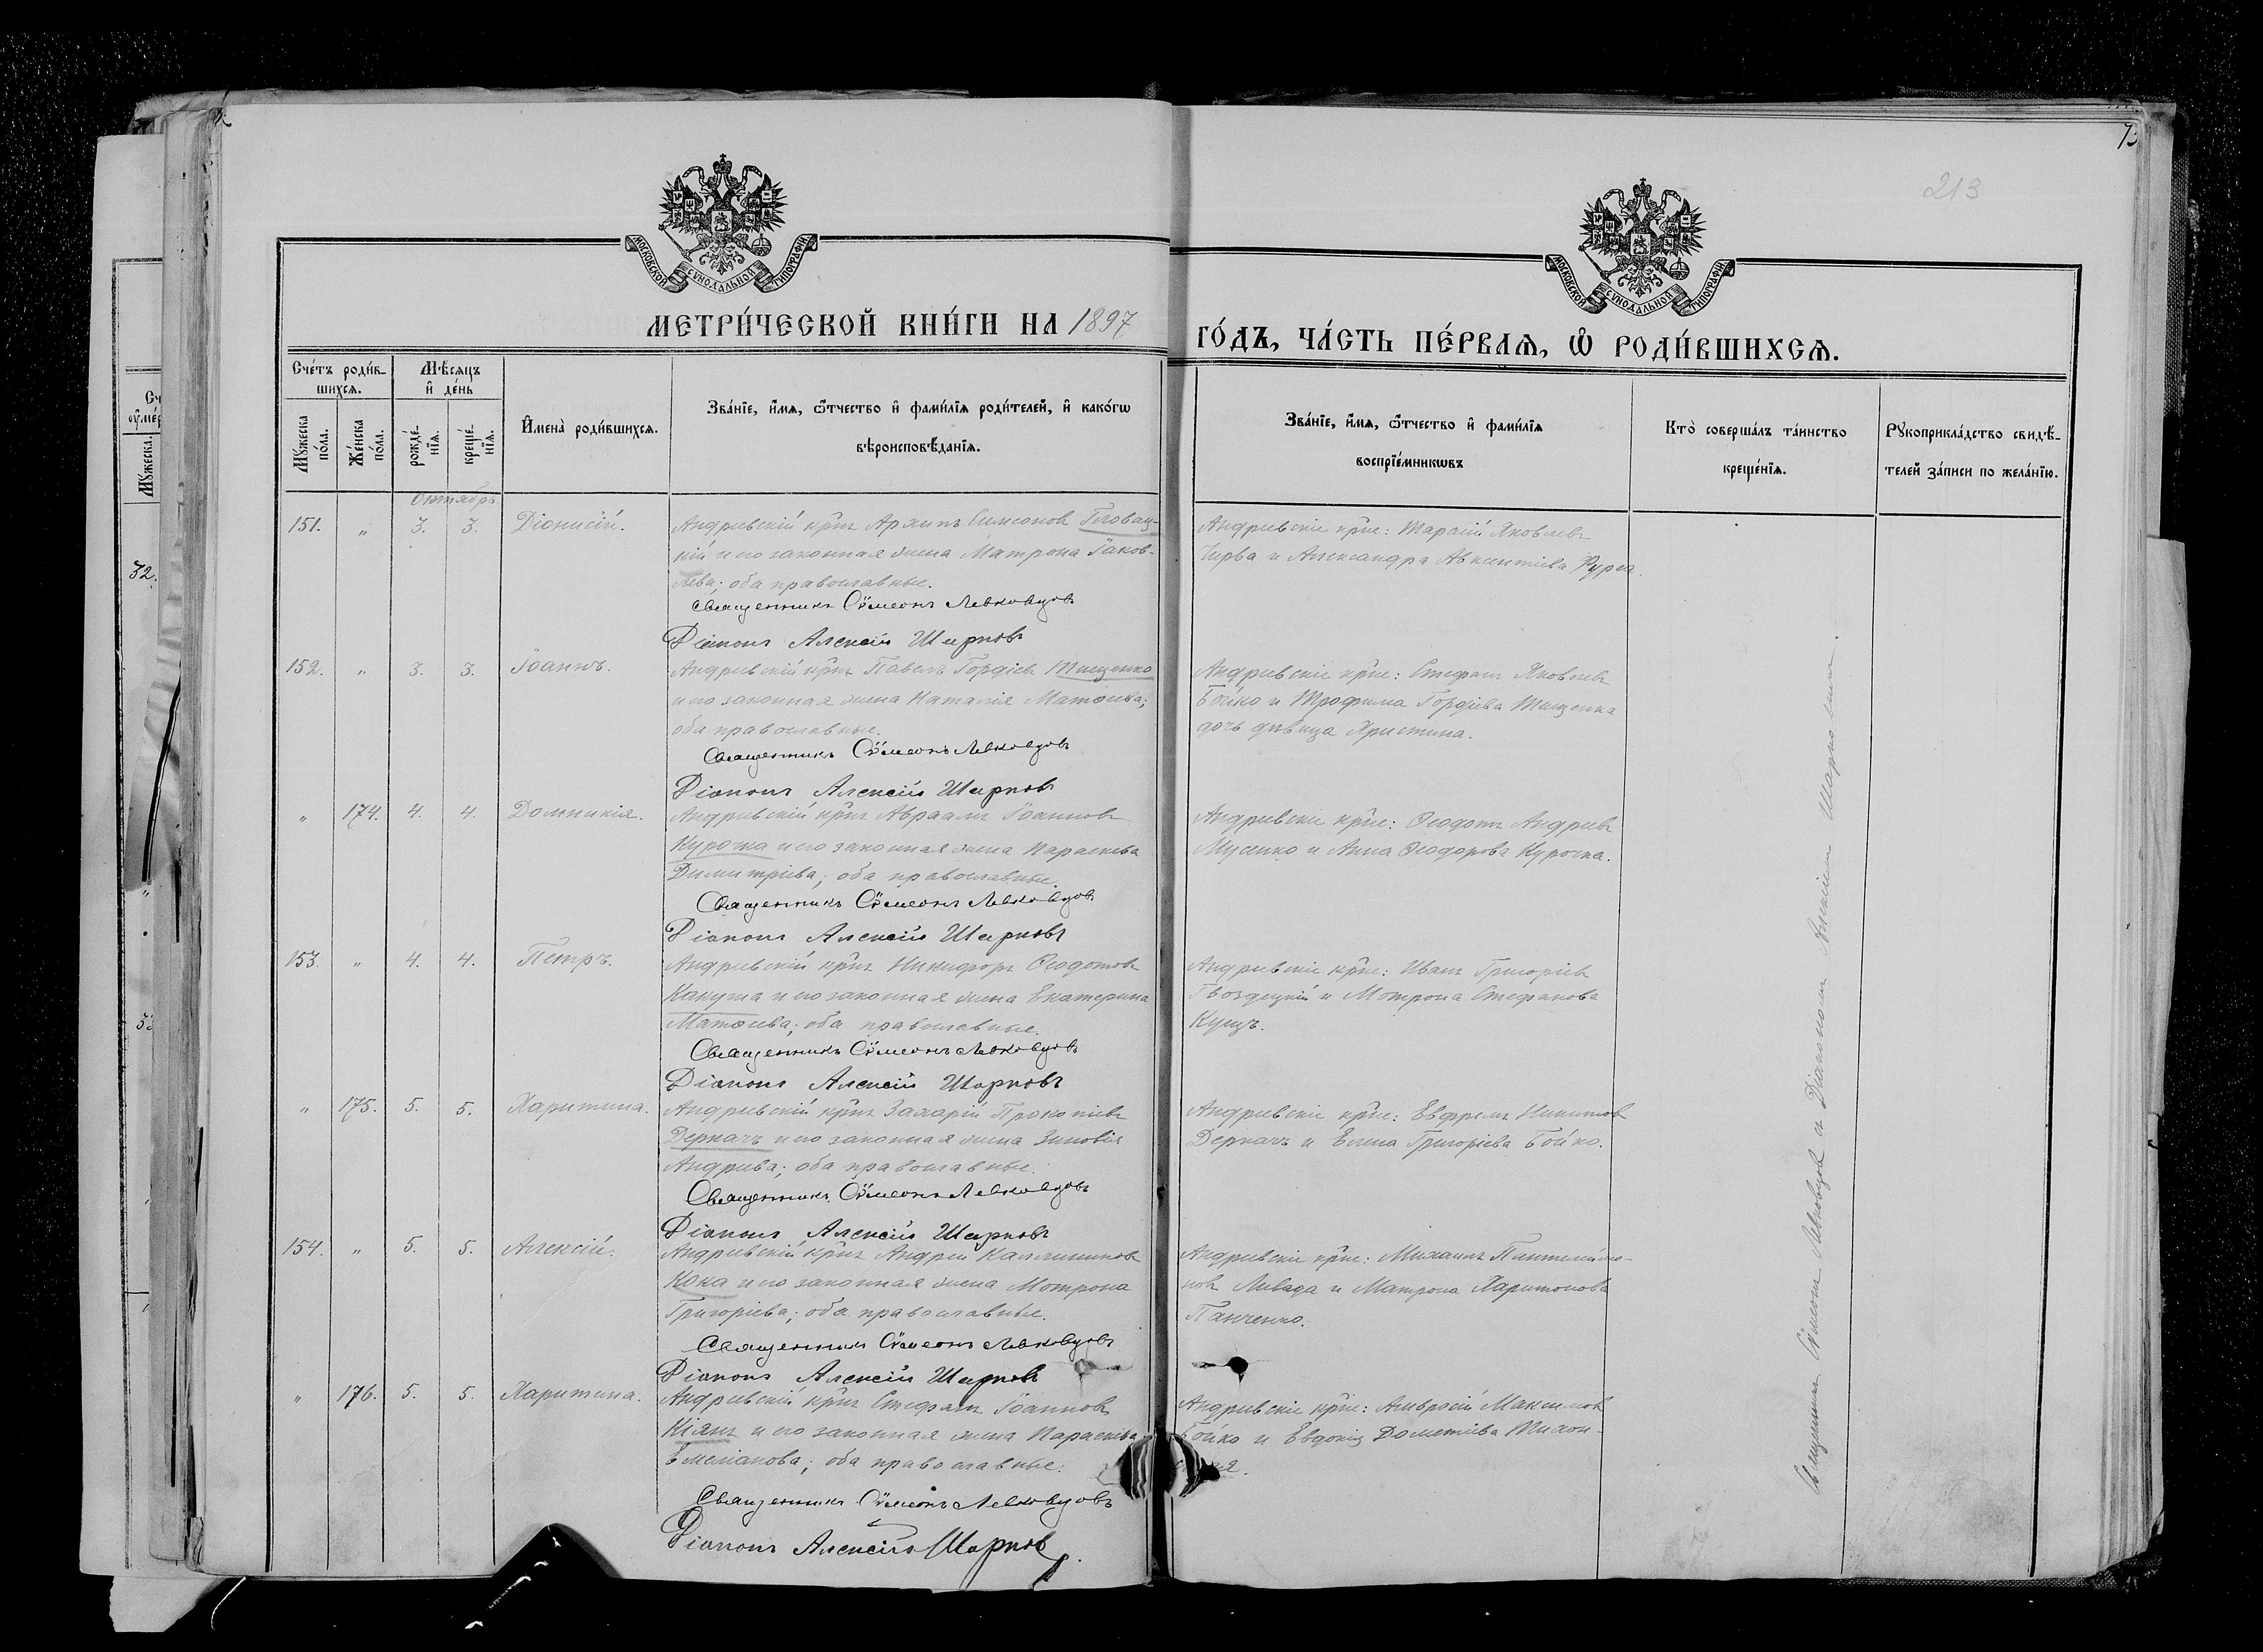 73
213
МОСКОВСКОЙ СѴНОДАЛЬНОЙ ТИПОГРАФІИ
МОСКОВСКОЙ СѴНОДАЛЬНОЙ ТИПОГРАФІИ
МЕТРИ́ЧЕСКОЙ КНИ́ГИ НА 1897
ГО́ДЪ, ЧА́СТЬ ПЕ́РВАЯ, Ѡ РОДИ́ВШИХСЯ.
Сче́тъ роди́в-
шихся.
Мѣ́сяцъ
и҆ де́нь
Мꙋ́жеска по́ла.
Же́нска по́ла.
рожде́-
нїя.
креще́-
нїя.
И҆мена̀ роди́вшихся.
Зва́нїе, и҆́мя, ѻ҆́тчество и҆ фами́лїя роди́телей, и҆ како́гѡ
вѣроисповѣ́данїя.
Зва́нїе, и҆́мя, ѻ҆́тчество и҆ фами́лїя
воспрїе́мникѡвъ
Кто̀ соверша́лъ та́инство
креще́нїя.
Рꙋкоприкла́дство свидѣ́-
телей за́писи по жела́нїю.
Октябрь
151. " 3. 3. Діонисій.
Андреевскій кр̃нъ Архипъ Симеоновъ Головац-
кій и его законная жена Матрона Іаков-
лева; оба православные.
Священникъ Сѵмеонъ Левковцовъ
Діаконъ Алексій Шарковъ
Андреевскіе кр̃не: Тарасій Яковлевъ
Чирва и Александра Авксентіева
152. " 3. 3. Іоаннъ.
Андреевскій кр̃нъ Павелъ Гордіевъ Тищенко
и его законная жена Наталія Матѳеева;
оба православные.
Священникъ Сѵмеонъ Левковцовъ
Діаконъ Алексій Шарковъ
Андреевскіе кр̃не: Стефанъ Яковлевъ
Бойко и Трофима Гордіева Тищенка
дочь дѣвица Христина.
" 174. 4. 4. Домникія.
Андреевскій кр̃нъ Авраамъ Іоанновъ
Курочка и его законная жена Параскева
Димитріева; оба православные.
Священникъ Сѵмеонъ Левковцовъ
Діаконъ Алексій Шарковъ
Андреевскіе кр̃не: Ѳеодотъ Андреевъ
Мусенко и Анна Ѳеодорова Курочка.
153. " 4. 4. Петръ.
Андреевскій кр̃нъ Никифоръ Ѳеодотовъ
Какуша и его законная жена Екатерина
Матѳеева; оба православные.
Священникъ Сѵмеонъ Левковцовъ
Діаконъ Алексій Шарковъ
Андреевскіе кр̃не: Иванъ Григоріевъ
Гвоздецкій и Мотрона Стефанова
Кущъ.
" 175. 5. 5. Харитина.
Андреевскій кр̃нъ Захарій Прокопіевъ
Деркачъ и его законная жена Зиновія
Андреева; оба православные.
Священникъ Сѵмеонъ Левковцовъ
Діаконъ Алексій Шарковъ
Андреевскіе кр̃не: Евфремъ Никитовъ
Деркачъ и Елена Григоріева Бойко.
154. " 5. 5. Алексій.
Андреевскій кр̃нъ Андрей Каллиниковъ
Кока и его законная жена Мотрона
Григоріева; оба православные.
Священникъ Сѵмеонъ Левковцовъ
Діаконъ Алексій Шарковъ
Андреевскіе кр̃не: Михаилъ Пантелеймо-
новъ Левада и Матрона Харитонова
Панченко.
" 176. 5. 5. Харитина.
Андреевскій кр̃нъ Стефанъ Іоанновъ
Кіянъ и его законная жена Параскева
Емеліанова; оба православные.
Священникъ Сѵмеонъ Левковцовъ
Діаконъ Алексій Шарковъ
Андреевскіе кр̃не: Амвросій Максимовъ
Бойко и Евдокія Дометіева Тихон-
Священникъ Сѵмеонъ Левковцовъ съ Діакономъ Алексіемъ Шарковымъ.
32.